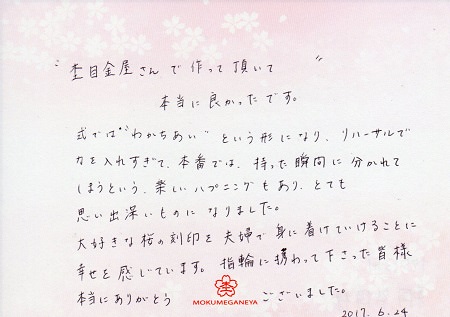 “杢目金屋さんで作って頂いて”
本当に良かったです。
式では“わかちあい”という形になり、リハーサルで
力を入れすぎて、本番では、持った瞬間に分かれて
しまうという、楽しいハプニングもあり、とても
思い出深いものになりました。
大好きな桜の刻印を夫婦で身に着けていけることに
幸せを感じています。指輪に携わって下さった皆様
本当にありがとうございました。
MOKUMEGANEYA
2017.6.24